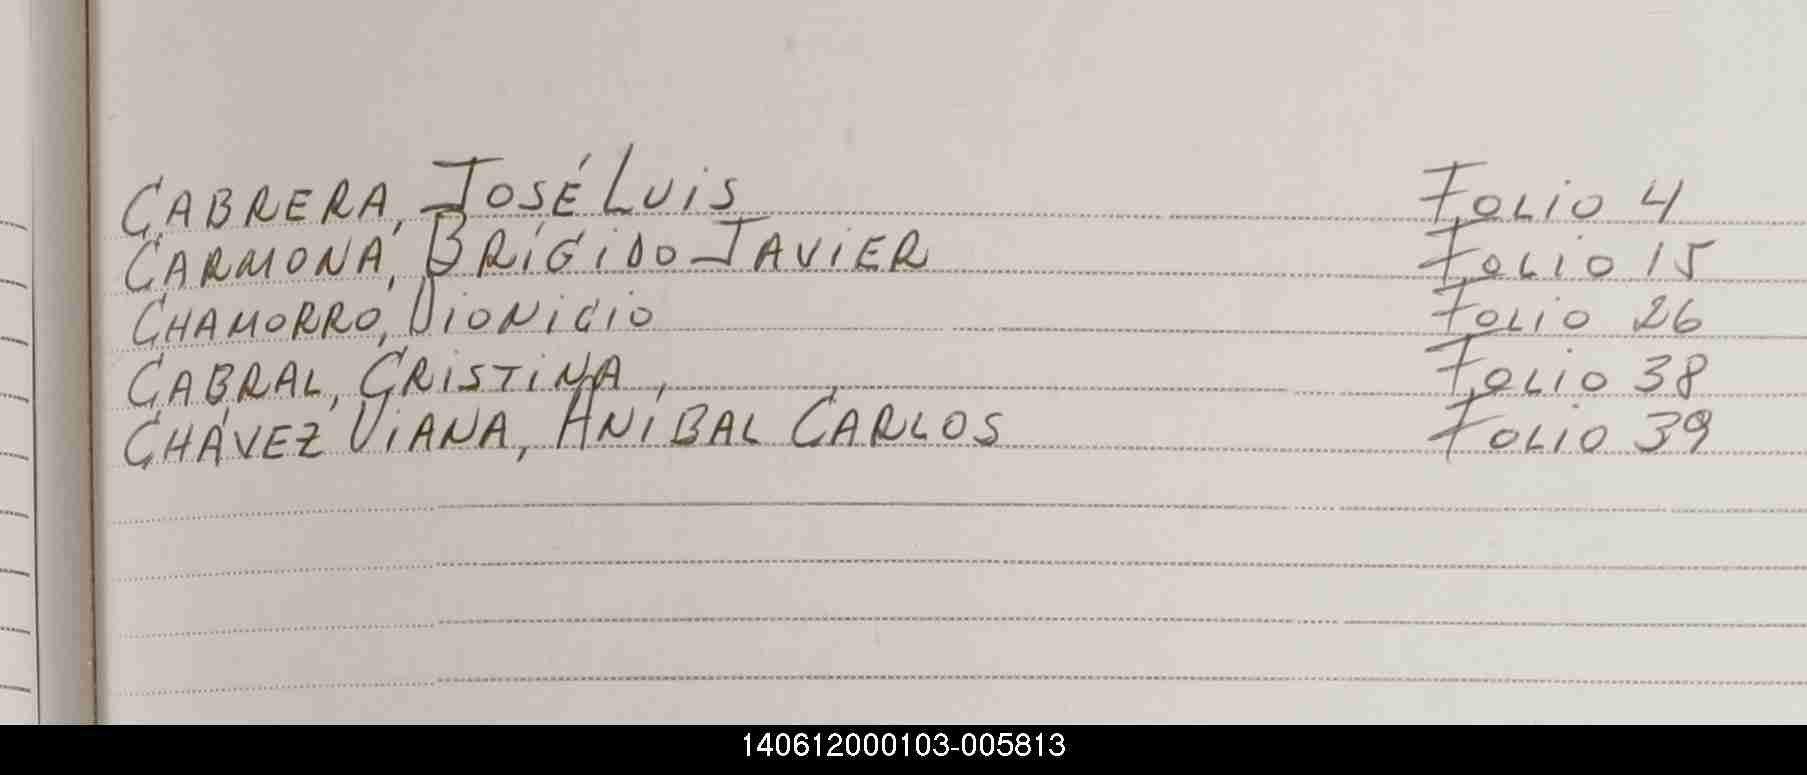 CABRERA, JOSÉ LUIS Folio 4
CARMONA, BRÍGIDO JAVIER Folio 15
CHAMORRO, DIONICIO Folio 26
CABRAL, CRISTINA, Folio 38
CHÁVEZ VIANA, ANÍBAL CARLOS Folio 39
140612000103-005813